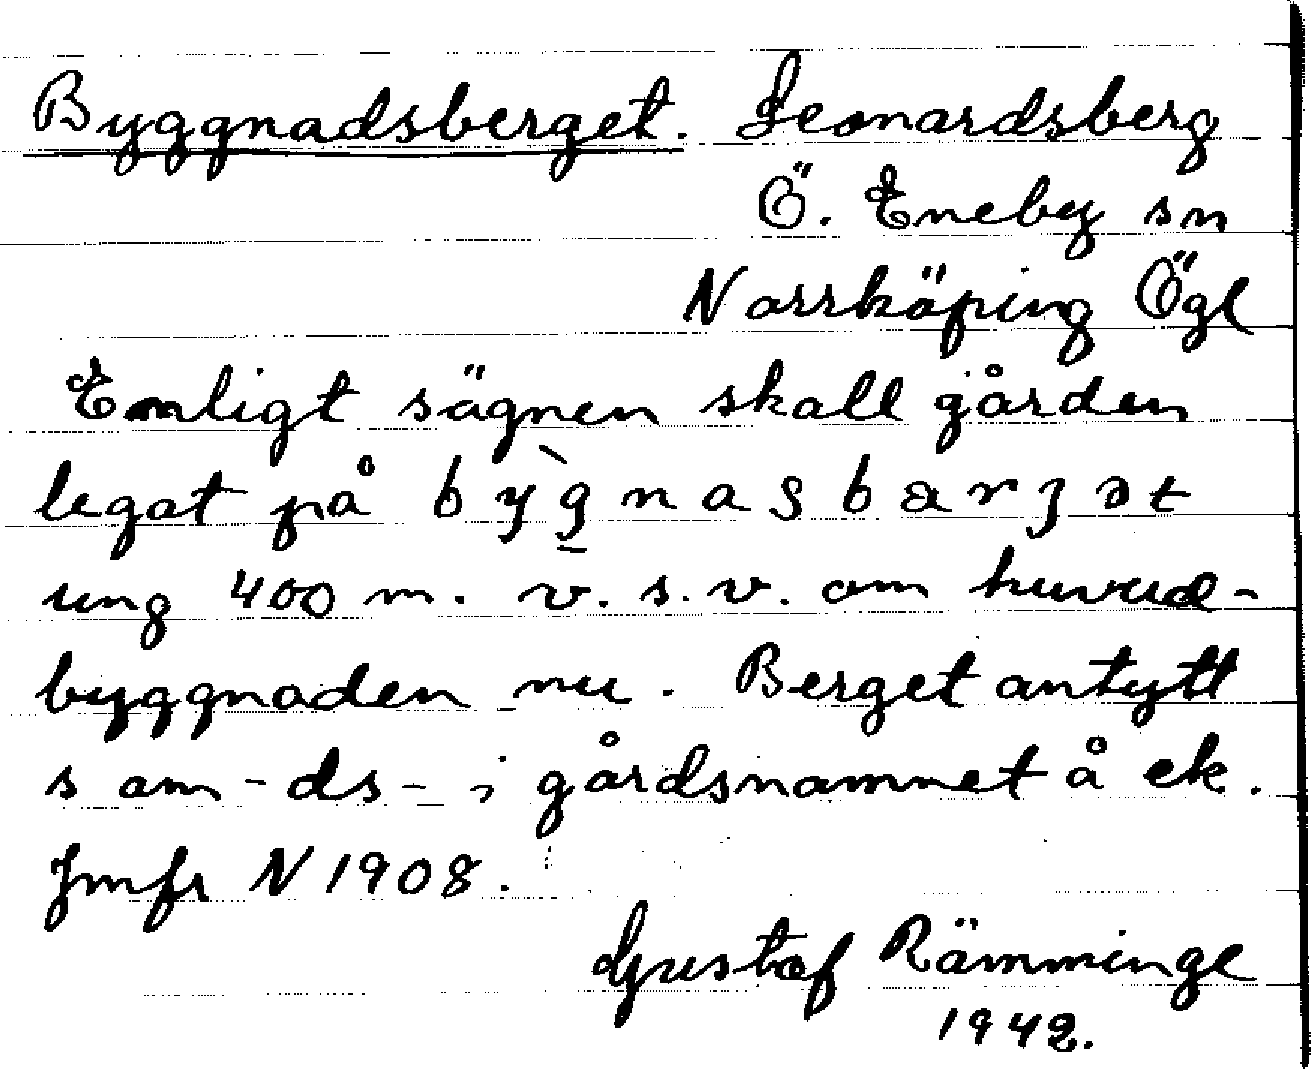 Byggnadsberget. Leonardsberg
Ö. Eneby sn
Norrköping Ögl
Enligt sägnen skall gården
legat på
ung 400 m. v. s. v. om huvud-
byggnaden nu. Berget antytt
som -ds- i gårdsnamnet å ek.
Jmfr N 1908.
Gustaf Rämminge
1942.